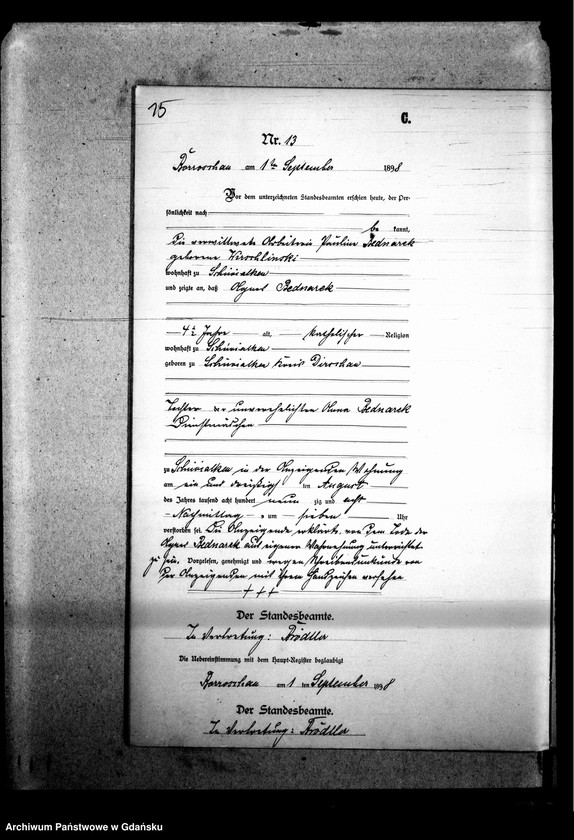 15
C.
Nr. 13
Borroschau am 1ten September 1898
Vor dem unterzeichneten Standesbeamten erschien heute, der Per-
sönlichkeit nach
be kannt,
die verwittwete Arbeiterin Pauline Bednarek
geborene
wohnhaft zu Schiwialken
und zeigte an, daß Agnes Bednarek
4 ½ Jahre alt, katholischer Religion
wohnhaft zu Schiwialken
geboren zu Schiwialken Kreis Dirschau
Tochter der unverehelichten Anna Bednarek
Dienstmädchen
zu Schiwialken in der Anzeigenden Wohnung
am ein und dreißigsten August
des Jahres tausend acht hundert neun zig und acht
Nachmittag s um sieben Uhr
verstorben sei. Die Anzeigende erklärte von dem Tode der
Agnes Bednarek aus eigener Wahrnehmung unterrichtet
zu sein. Vorgelesen, genehmigt und wegen Schreibensunkunde von
der Anzeigenden mit ihrem Handzeichen versehen
+ + +
Der Standesbeamte.
In Vertretung:
Die Uebereinstimmung mit dem Haupt-Register beglaubigt
Borroschau am 1 ten September 1898
Der Standesbeamte.
In Vertretung:
Archiwum Państwowe w Gdańsku